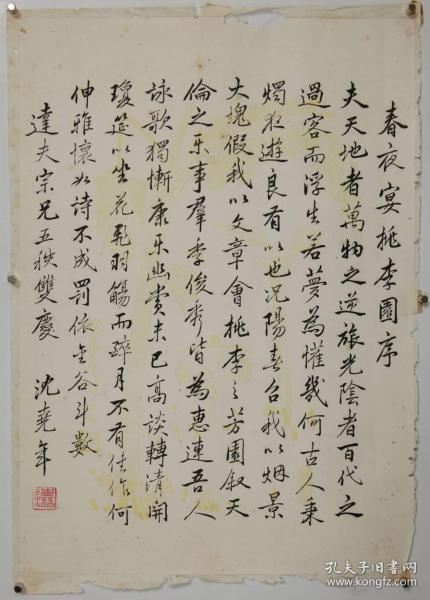 春夜宴桃李園序
夫天地者萬物之逆旅光陰者百代之
過客而浮生若夢為懽幾何古人秉
燭夜遊良有以也況陽春召我以烟景
大塊假我以文章會桃李之芳園叙天
倫之乐事羣季俊秀皆為惠連吾人
詠歌獨慚康乐幽賞未已高談轉清開
瓊筵以坐花飛羽觴而醉月不有佳作何
伸雅懷如詩不成罰依金谷斗數
達夫宗兄五秩雙慶 沈堯年
孔夫子旧書网
www.kongfz.com